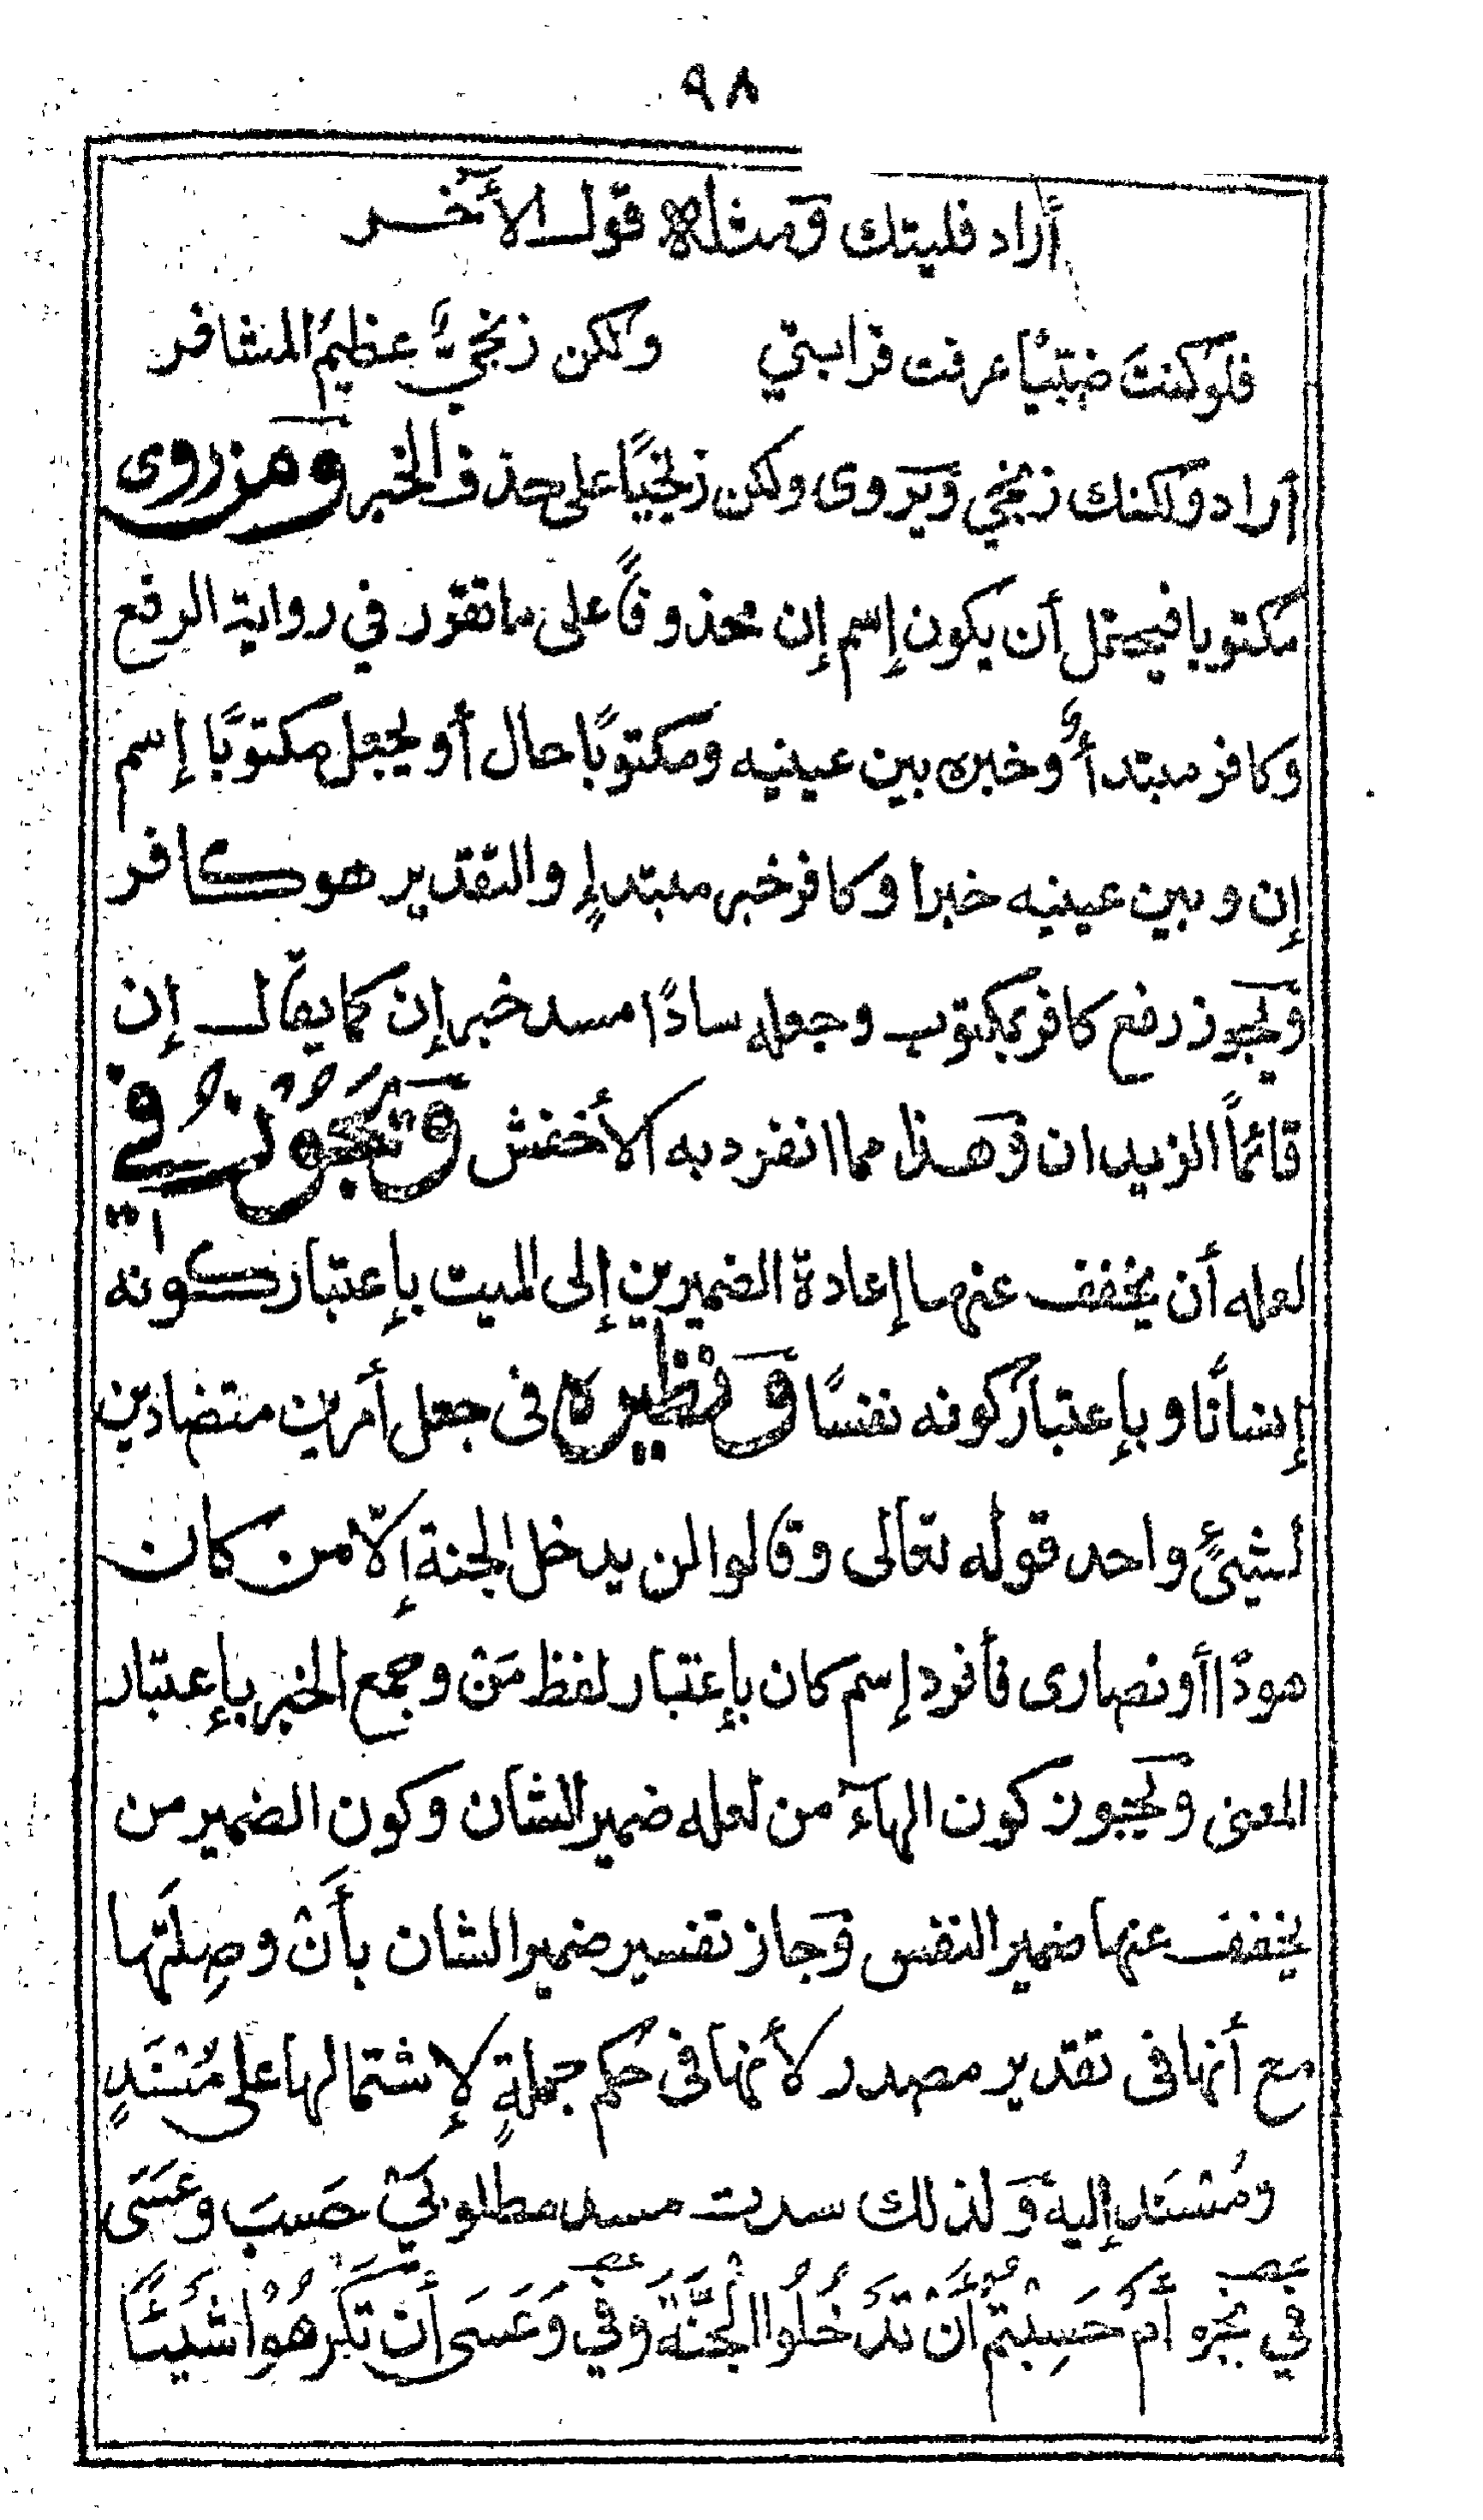 ٩٨
أراد فليتك ومثله قول الأخر
فلو كنتَ ضبّيًا عرفت قرابتي ولكن زنجيٌّ عظيمُ المشافر
أراد ولكنك زنجي ويروى ولكن زنجيًا على حذف الخبر ومن روى
مكتوبا فيحتمل أن يكون إسم إن محذوفًا على ما تقرر في رواية الرفع
وكافر مبتدأٌ وخبره بين عينيه ومكتوبًا حال أو يجعل مكتوبًا إسم
إن وبين عينيه خبرا وكافر خبر مبتدإٍ والتقدير هو كافر
ويجوز رفع كافر بمكتوب وجعله سادًا مسد خبر إن كما يقال إن
قائمًا الزيدان وهذا مما انفرد به الأخفش وَيَجُوْزُ فِي
لعله أن يخفف عنها إعادة الضميرين إلى الميت بإعتبار كونه
إنسانًا وبإعتبار كونه نفسًا وَنظيره فى جعل أمرين متضادين
لشيئٍ واحد قوله تعالى وقالوا لن يدخل الجنة إلّا من كان
هودًا أو نصارى فأفرد إسم كان بإعتبار لفظ مَنْ وجمع الخبر بإعتبار
المعنى ويجوز كون الهآء من لعله ضمير الشان وكون الضمير من
يخفف عنها ضمير النفس وجاز تفسير ضمير الشان بأَنْ وصِلَتها
مع أنها فى تقدير مصدر لأنها فى حكم جملةٍ لإشتمالها على مُسْنَدٍ
ومُسْنَدٍ إليه ولذلك سدت مسد مطلوبَيْ حَسِبَ وعَسَى
في نحو أَمْ حَسِبْتُمْ أَنْ تَدْخُلُوا الْجَنَّةَ وَفي وَعَسَى أَنْ تَكْرَهُوْا شَيْئًا